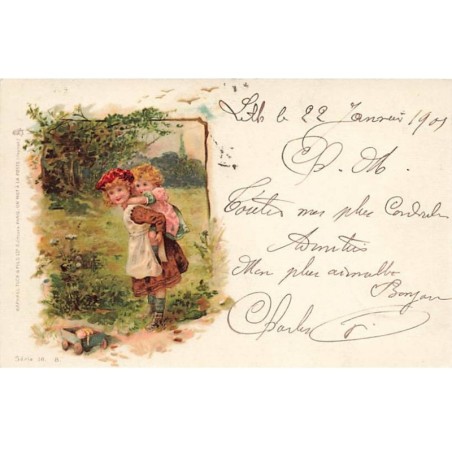 Lille le 22 Janvier 1901
C. M.
Toutes mes plus Cordiales
Amitiés
Mon plus aimable
Bonjour
Charles
RAPHAEL TUCK & FILS
PARIS
Série